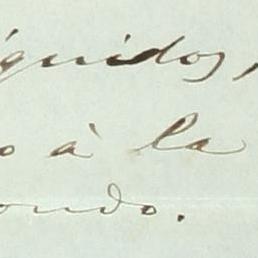 quidos,
o à la
ondo.